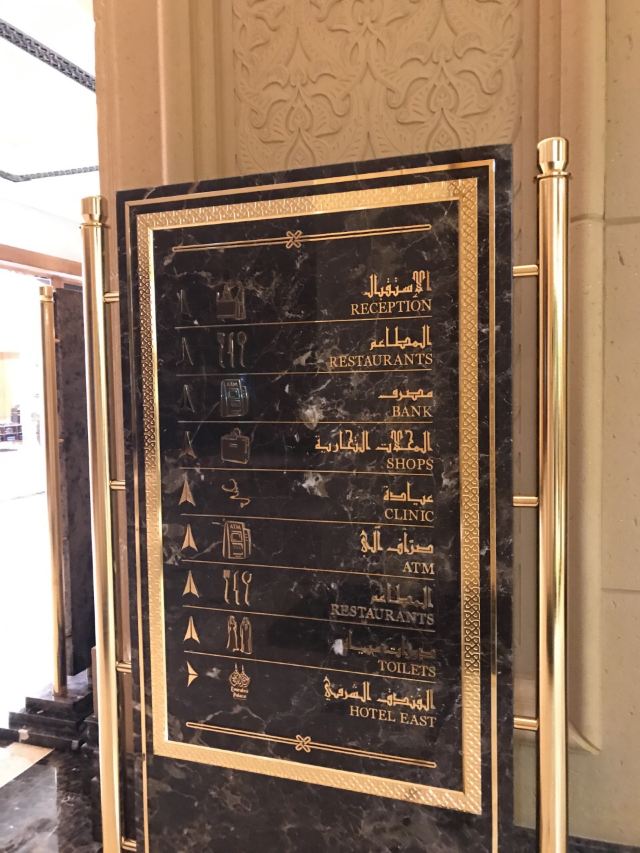 الإستقبال
RECEPTION
المطاعم
RESTAURANTS
مصرف
BANK
ATM
المحلات التجارية
SHOPS
عيادة
CLINIC
صراف آلي
ATM
ATM
المطاعم
RESTAURANTS
دورات مياه
TOILETS
الفندق الشرقي
HOTEL EAST
Emirates
Palace